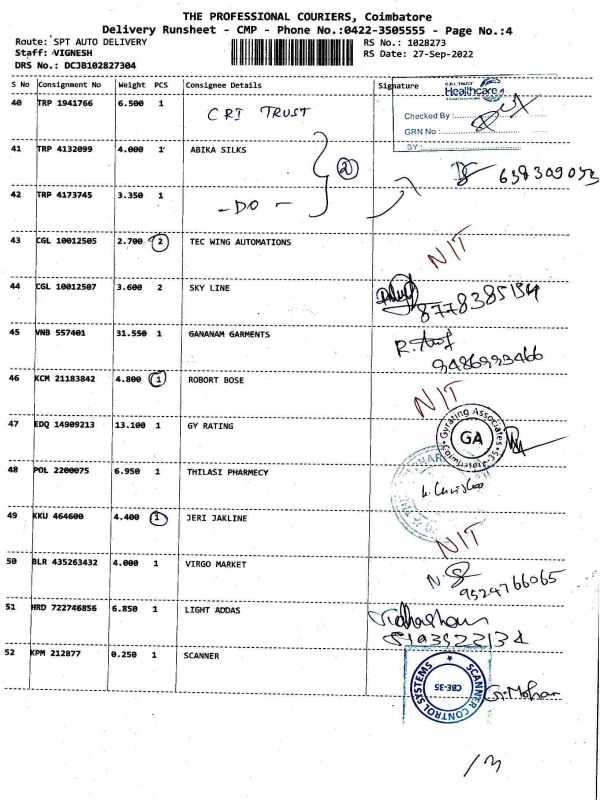 THE PROFESSIONAL COURIERS, Coimbatore
Delivery Runsheet - CMP - Phone No.:0422-3505555 - Page No.:4
Route: SPT AUTO DELIVERY RS No.: 1028273
Staff: VIGNESH RS Date: 27-Sep-2022
DRS No.: DCJB102827304
S No Consignment No Weight PCS Consignee Details Signature
C.R.I. TRUST
Healthcare
40 TRP 1941766 6.500 1 CRI TRUST
Checked By :
GRN No :
BY :
41 TRP 4132099 4.000 1 ABIKA SILKS
2
42 TRP 4173745 3.350 1 -DO-
43 CGL 10012505 2.700 2 TEC WING AUTOMATIONS NIT
44 CGL 10012507 3.600 2 SKY LINE
45 VNB 557401 31.550 1 GANANAM GARMENTS
9486993466
46 KCM 21183842 4.800 1 ROBORT BOSE NIT
47 EDQ 14909213 13.100 1 GY RATING
Gyrating Associates
GA
48 POL 2200075 6.950 1 THILASI PHARMECY
49 KKU 464600 4.400 1 JERI JAKLINE NIT
50 BLR 435263432 4.000 1 VIRGO MARKET
9524766065
51 HRD 722746856 6.850 1 LIGHT ADDAS
52 KPM 212877 0.250 1 SCANNER
SCANNER CONTROL SYSTEMS
CBE-35
G. Mohan
13